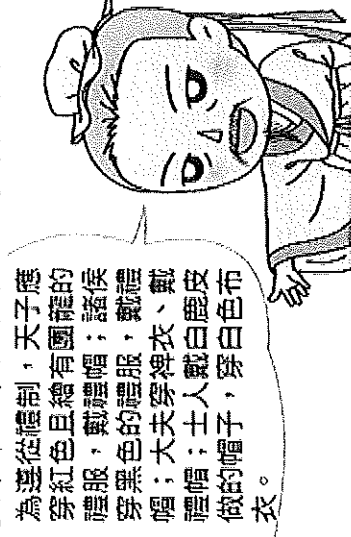 為遵從禮制，天子應
穿紅色且繪有團龍的
禮服，戴禮帽；諸侯
穿黑色的禮服，戴禮
帽；大夫穿裨衣、戴
禮帽；士人戴白鹿皮
做的帽子，穿白色布
衣。